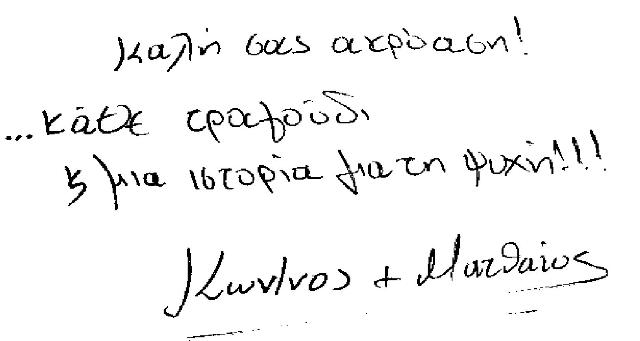 Καλή σας ακρόαση!
...κάθε τραγούδι
κ μια ιστορία για τη ψυχή!!!
Κων/νος + Ματθαίος